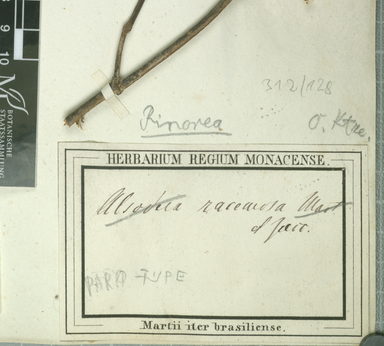 8
9
10
BOTANISCHE
STAATSSAMMLUNG
312/128
Rinorea
O. Ktze.
HERBARIUM REGIUM MONACENSE.
Alsodeia racemosa Mart
et Zucc.
PARATYPE
Martii iter brasiliense.